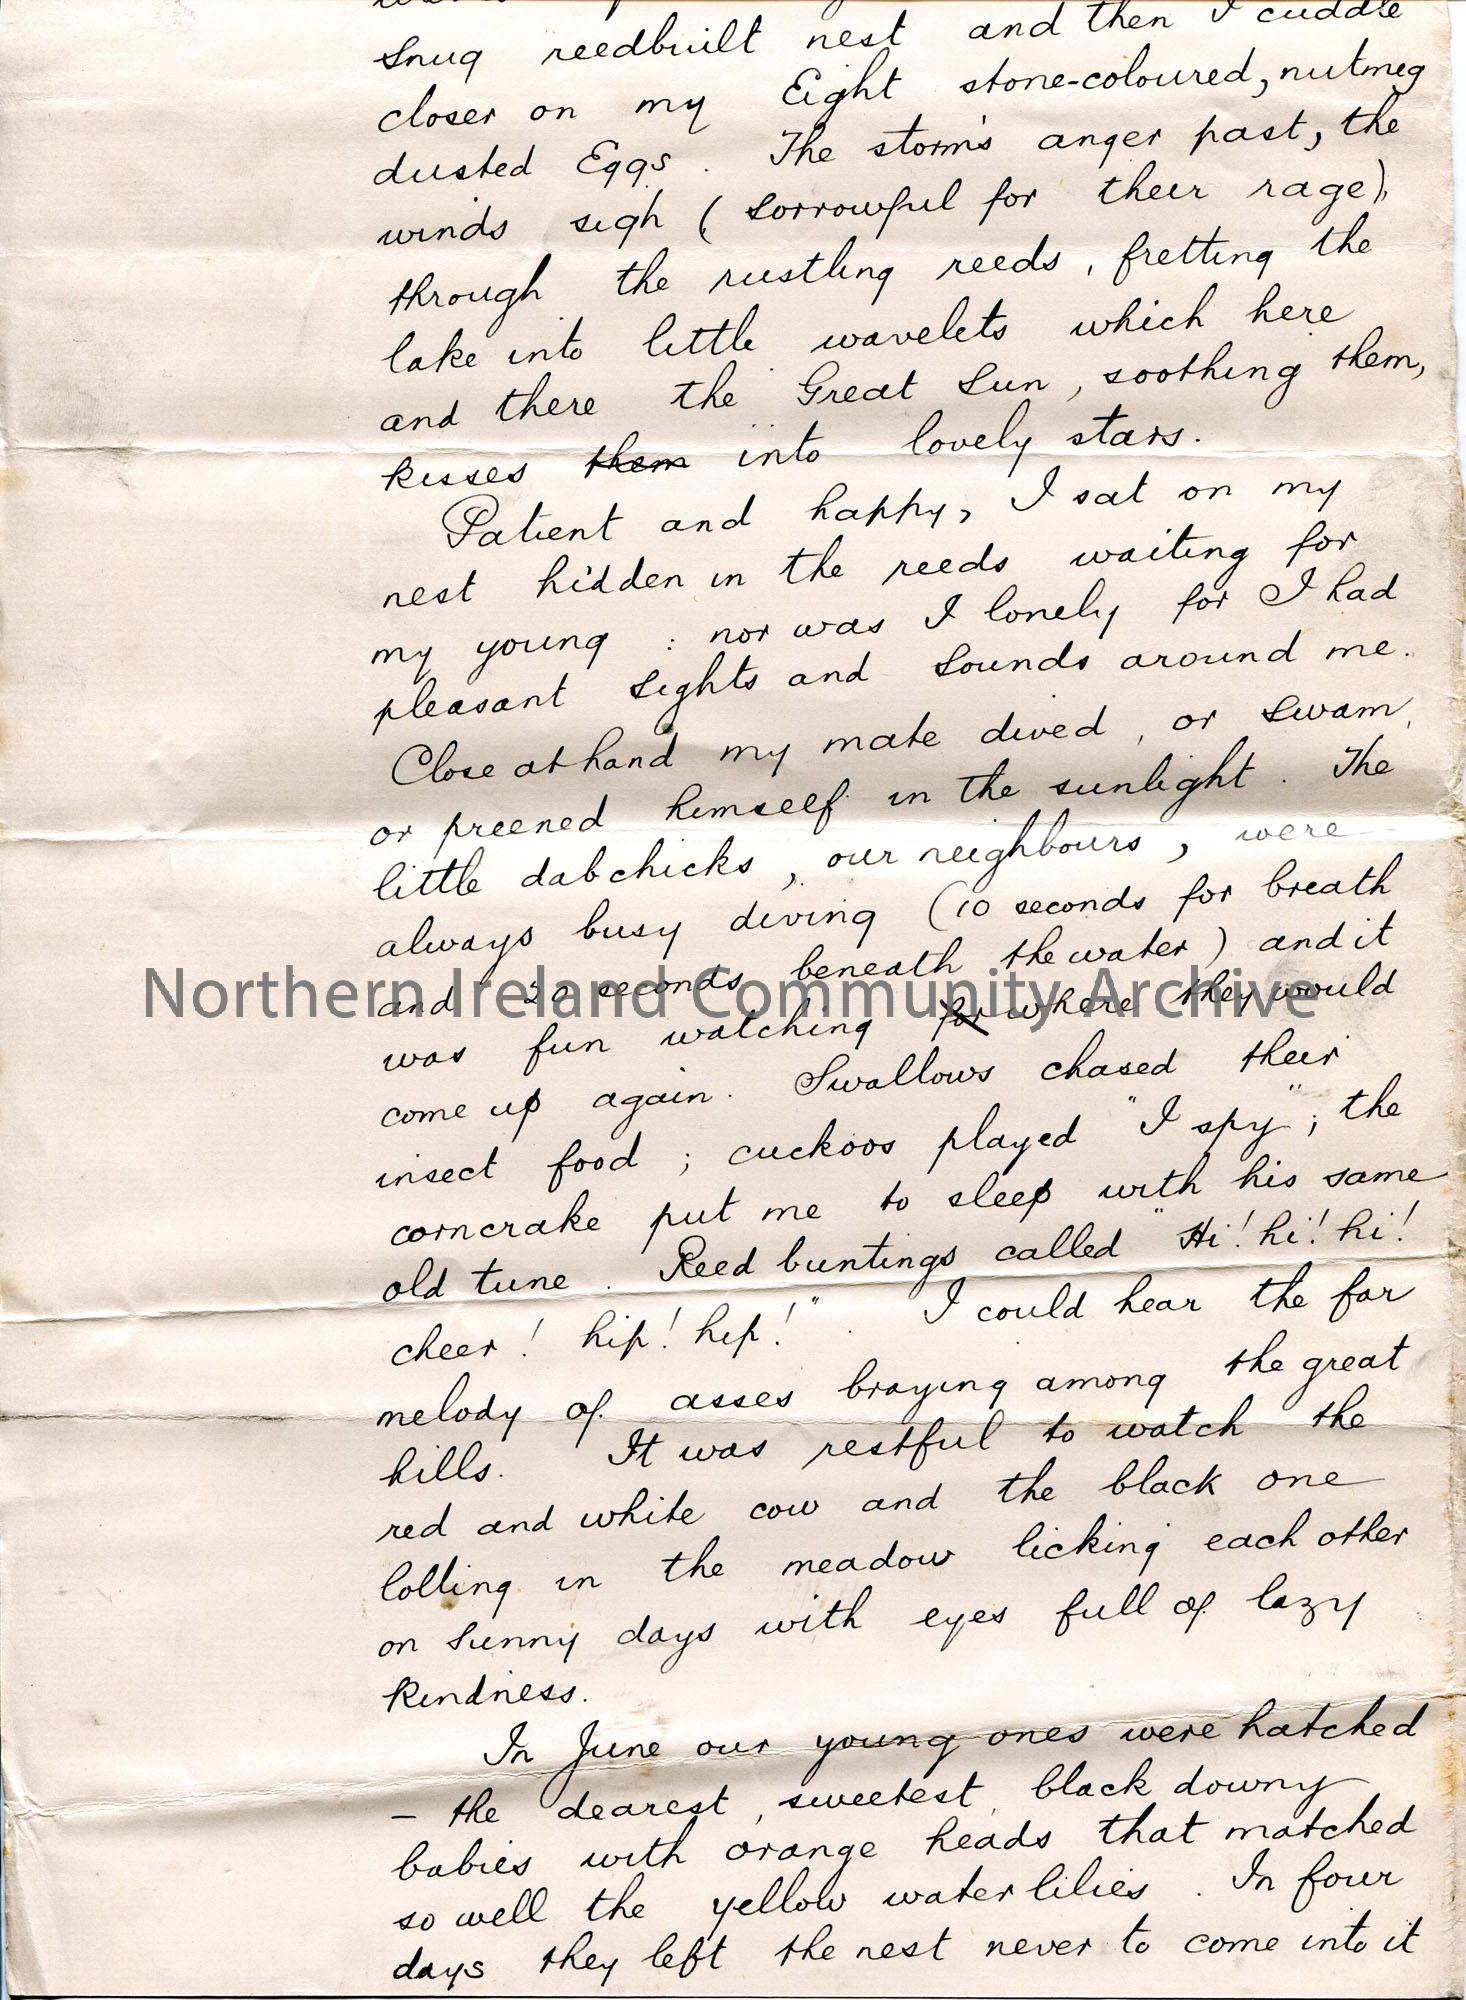 snug reedbuilt nest and then I cuddle
closer on my Eight stone-coloured, nutmeg
dusted Eggs. The storm's anger past, the
winds sigh (sorrowful for their rage),
through the rustling reeds, fretting the
lake into little wavelets which here
and there the Great Sun, soothing them,
kisses them into lovely stars.
Patient and happy, I sat on my
nest hidden in the reeds waiting for
my young : nor was I lonely for I had
pleasant sights and sounds around me.
Close at hand my mate dived, or swam,
or preened himself in the sunlight. The
little dabchicks, our neighbours, were
always busy diving (10 seconds for breath
and 20 seconds beneath the water) and it
Northern Ireland Community Archive
was fun watching for where they would
come up again. Swallows chased their
insect food ; cuckoos played "I spy" ; the
corncrake put me to sleep with his same
old tune. Reed buntings called "Hi! hi! hi!
cheer! hip! hip!". I could hear the far
melody of asses braying among the great
hills. It was restful to watch the
red and white cow and the black one
lolling in the meadow licking each other
on sunny days with eyes full of lazy
kindness.
In June our young ones were hatched
- the dearest, sweetest, black downy
babies with orange heads that matched
so well the yellow water lilies. In four
days they left the nest never to come into it